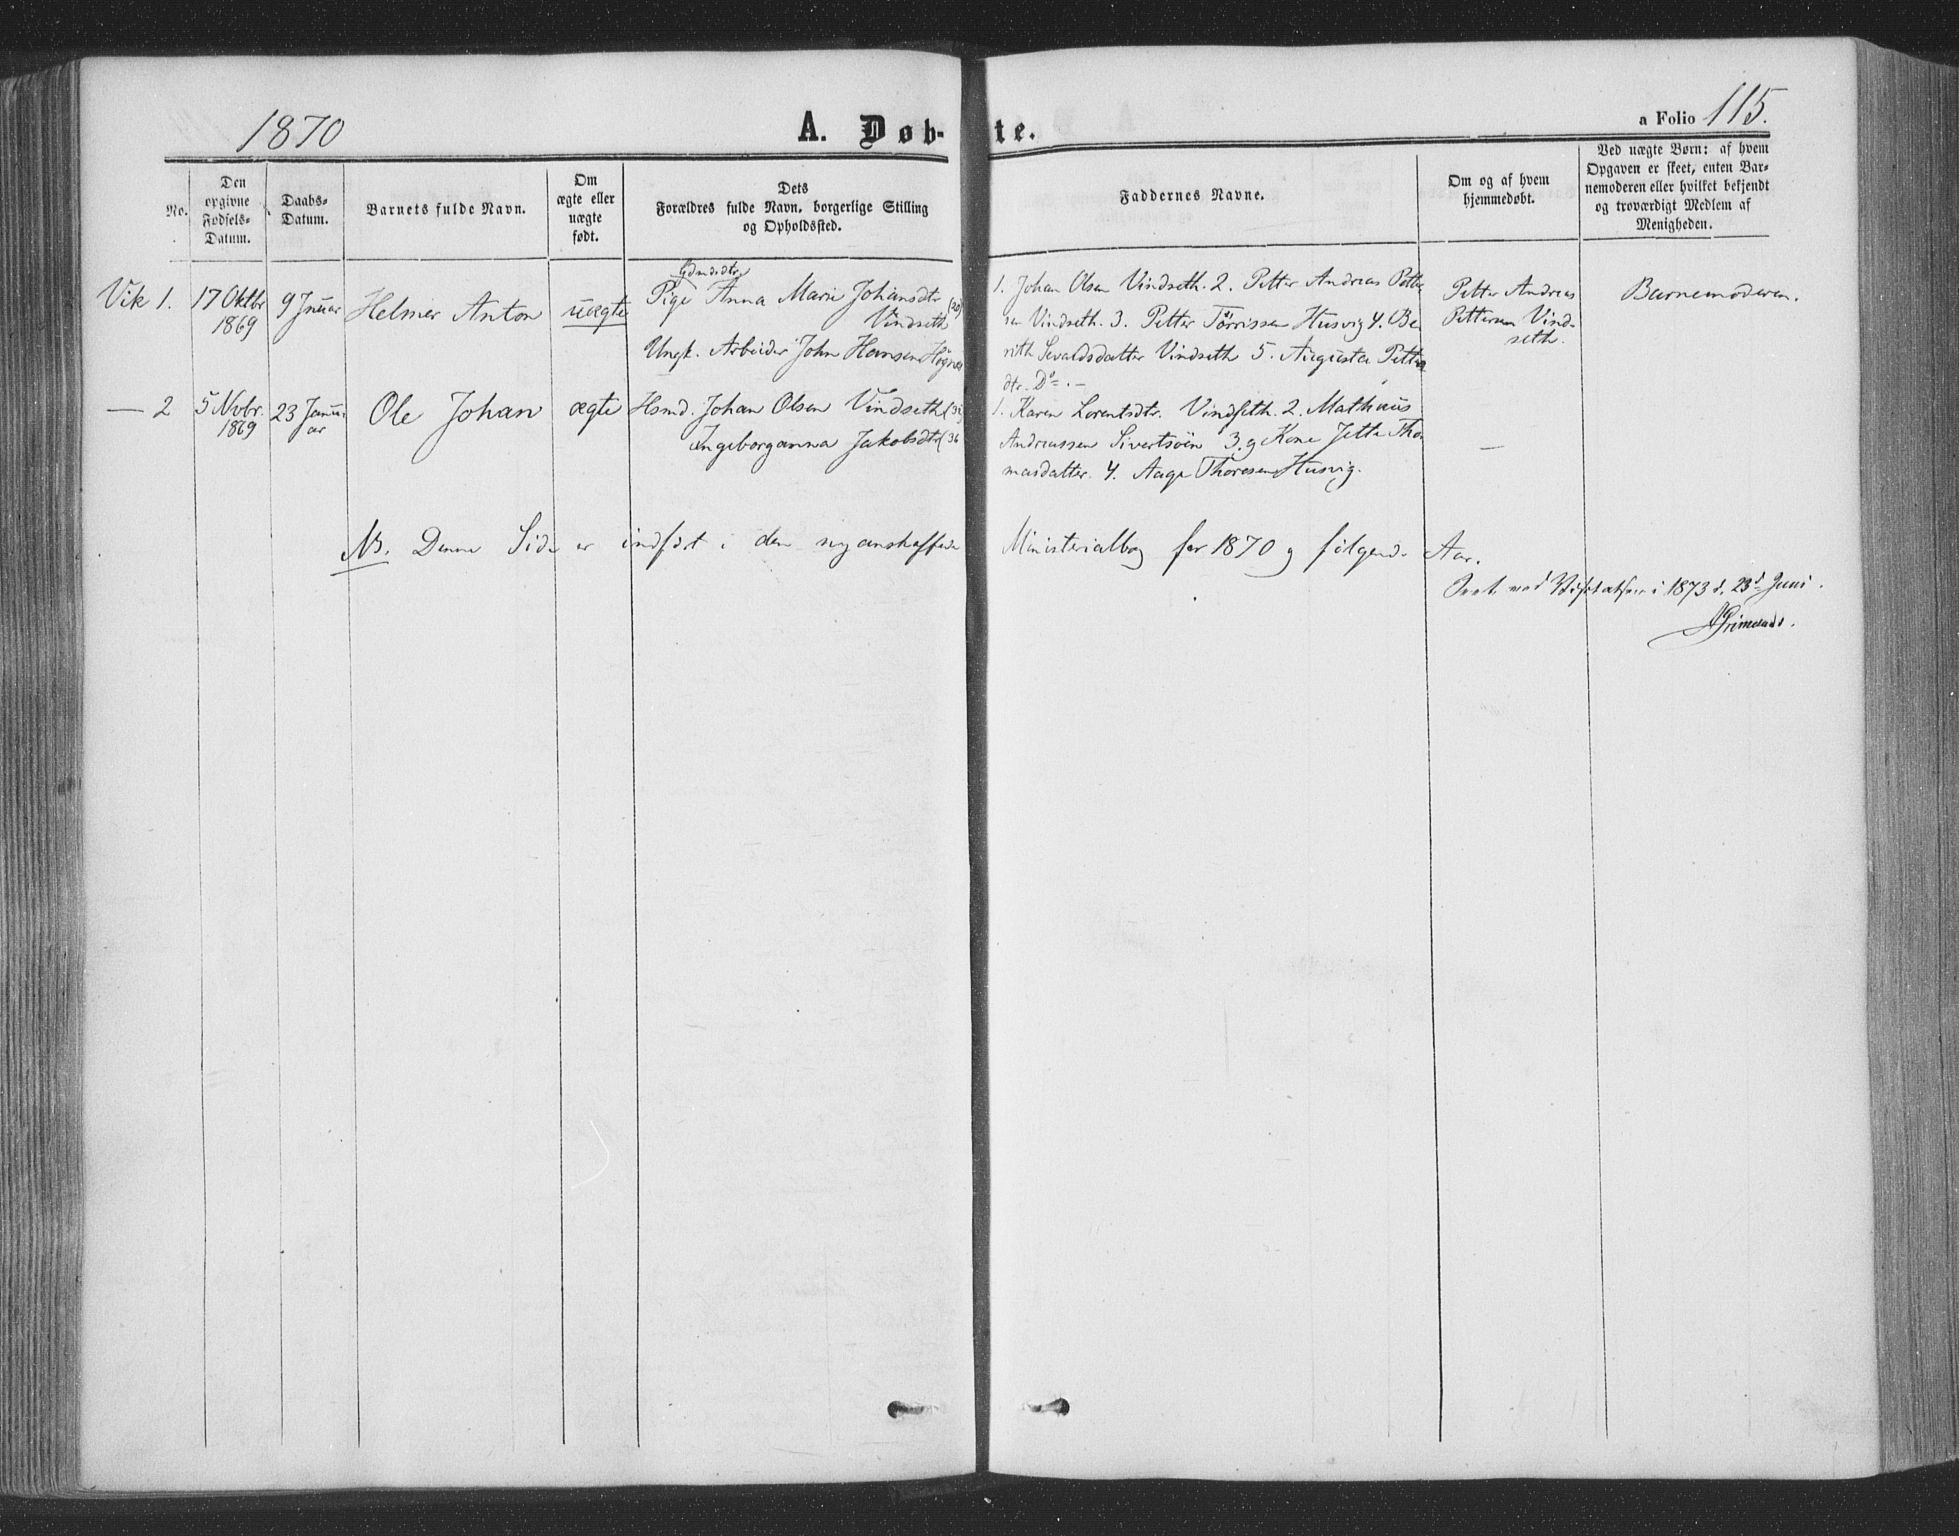 1870
A. Døb-te.
a Folio 115.
No.
Den
opgivne
Fødsels-
Datum.
Daabs-
Datum.
Barnets fulde Navn.
Om
ægte eller
uægte
født.
Dets
Forældres fulde Navn, borgerlige Stilling
og Opholdssted.
Faddernes Navne.
Om og af hvem
hjemmedøbt.
Ved uægte Børn: af hvem
Opgaven er skeet, enten Bar-
nemoderen eller hvilket bekjendt
og troværdigt Medlem af
Menigheden.
Vik 1.
17 Oktbr
1869
9 Jnuar
Helmer Anton
uægte
Gdmdsdtr.
Pige Anna Marie Johansdtr (20)
Vindseth
Ungk. Arbeider John Hansen
1. Johan Olsen Vindseth. 2. Petter Andreas Petter
sen Vindseth. 3. Petter Törrissen Husvig 4. Be
rith Sevaldsdatter Vindseth 5. Augusta Petter
dtr. Do .-
Petter Andreas
Pettersen Vind-
seth.
Barnemoderen.
— 2
5 Nvbr.
1869
23 Janu-
ar
Ole Johan
ægte
Hsmd. Johan Olsen Vindseth
Ingeborganna Jakobsdtr (36
1. Karen Lorentsdtr. Vindseth. 2. Mathæus
Andreassen Sivertsöen 3. g Kone Jetta Tho
masdatter. 4. Aage Thoresen Husvig.
—
NB. Denne Side er indført i den nyanskaffede Ministerialbog for 1870 og følgende Aar.
Seet ved Visitatsen i 1873 d. 23d Juni.
AGrimelund.